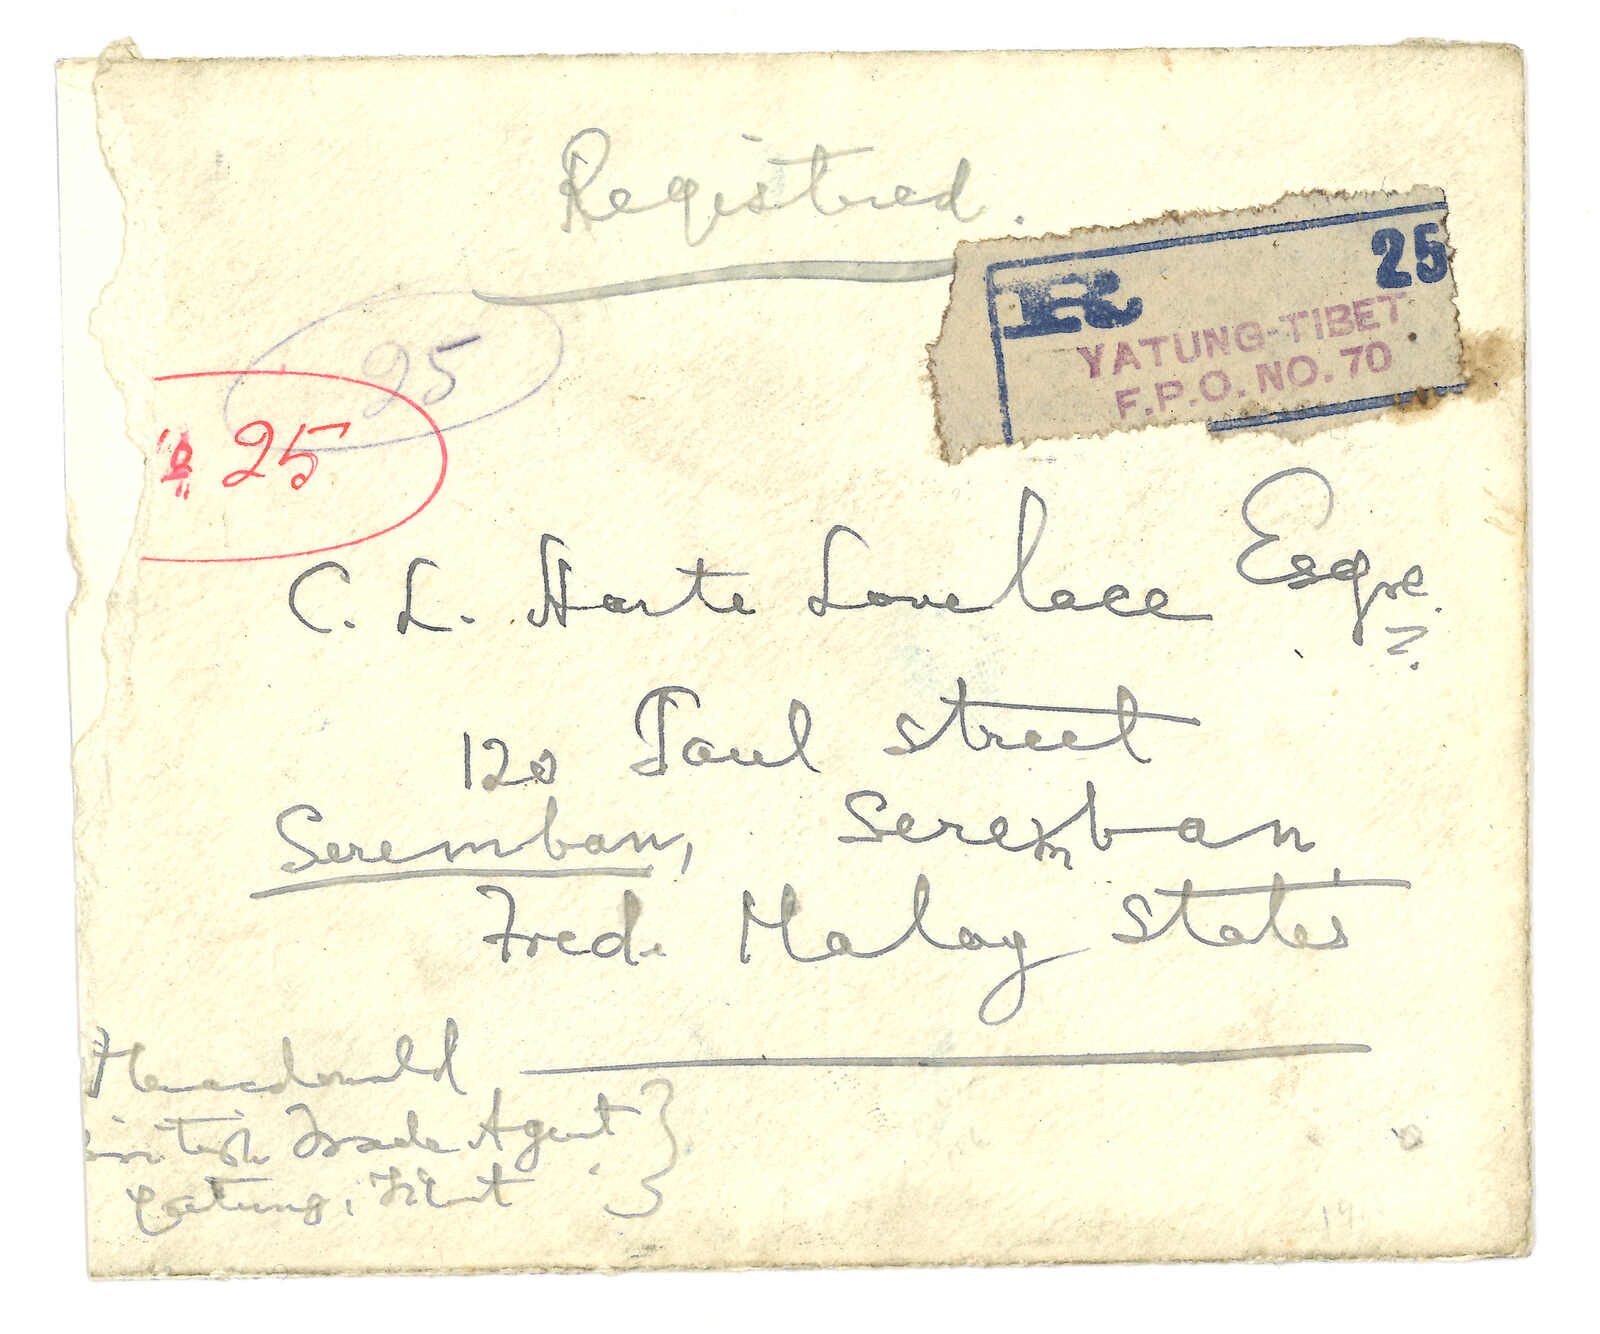 Registred.
R 25
YATUNG-TIBET
F.P.O. NO. 70
25
25
C. L. Harte Lovelace Esqre.
120 Paul Street
Seremban, Seremban,
Fred. Malay States
Macdonald
British Trade Agent
Yatung, Tibet